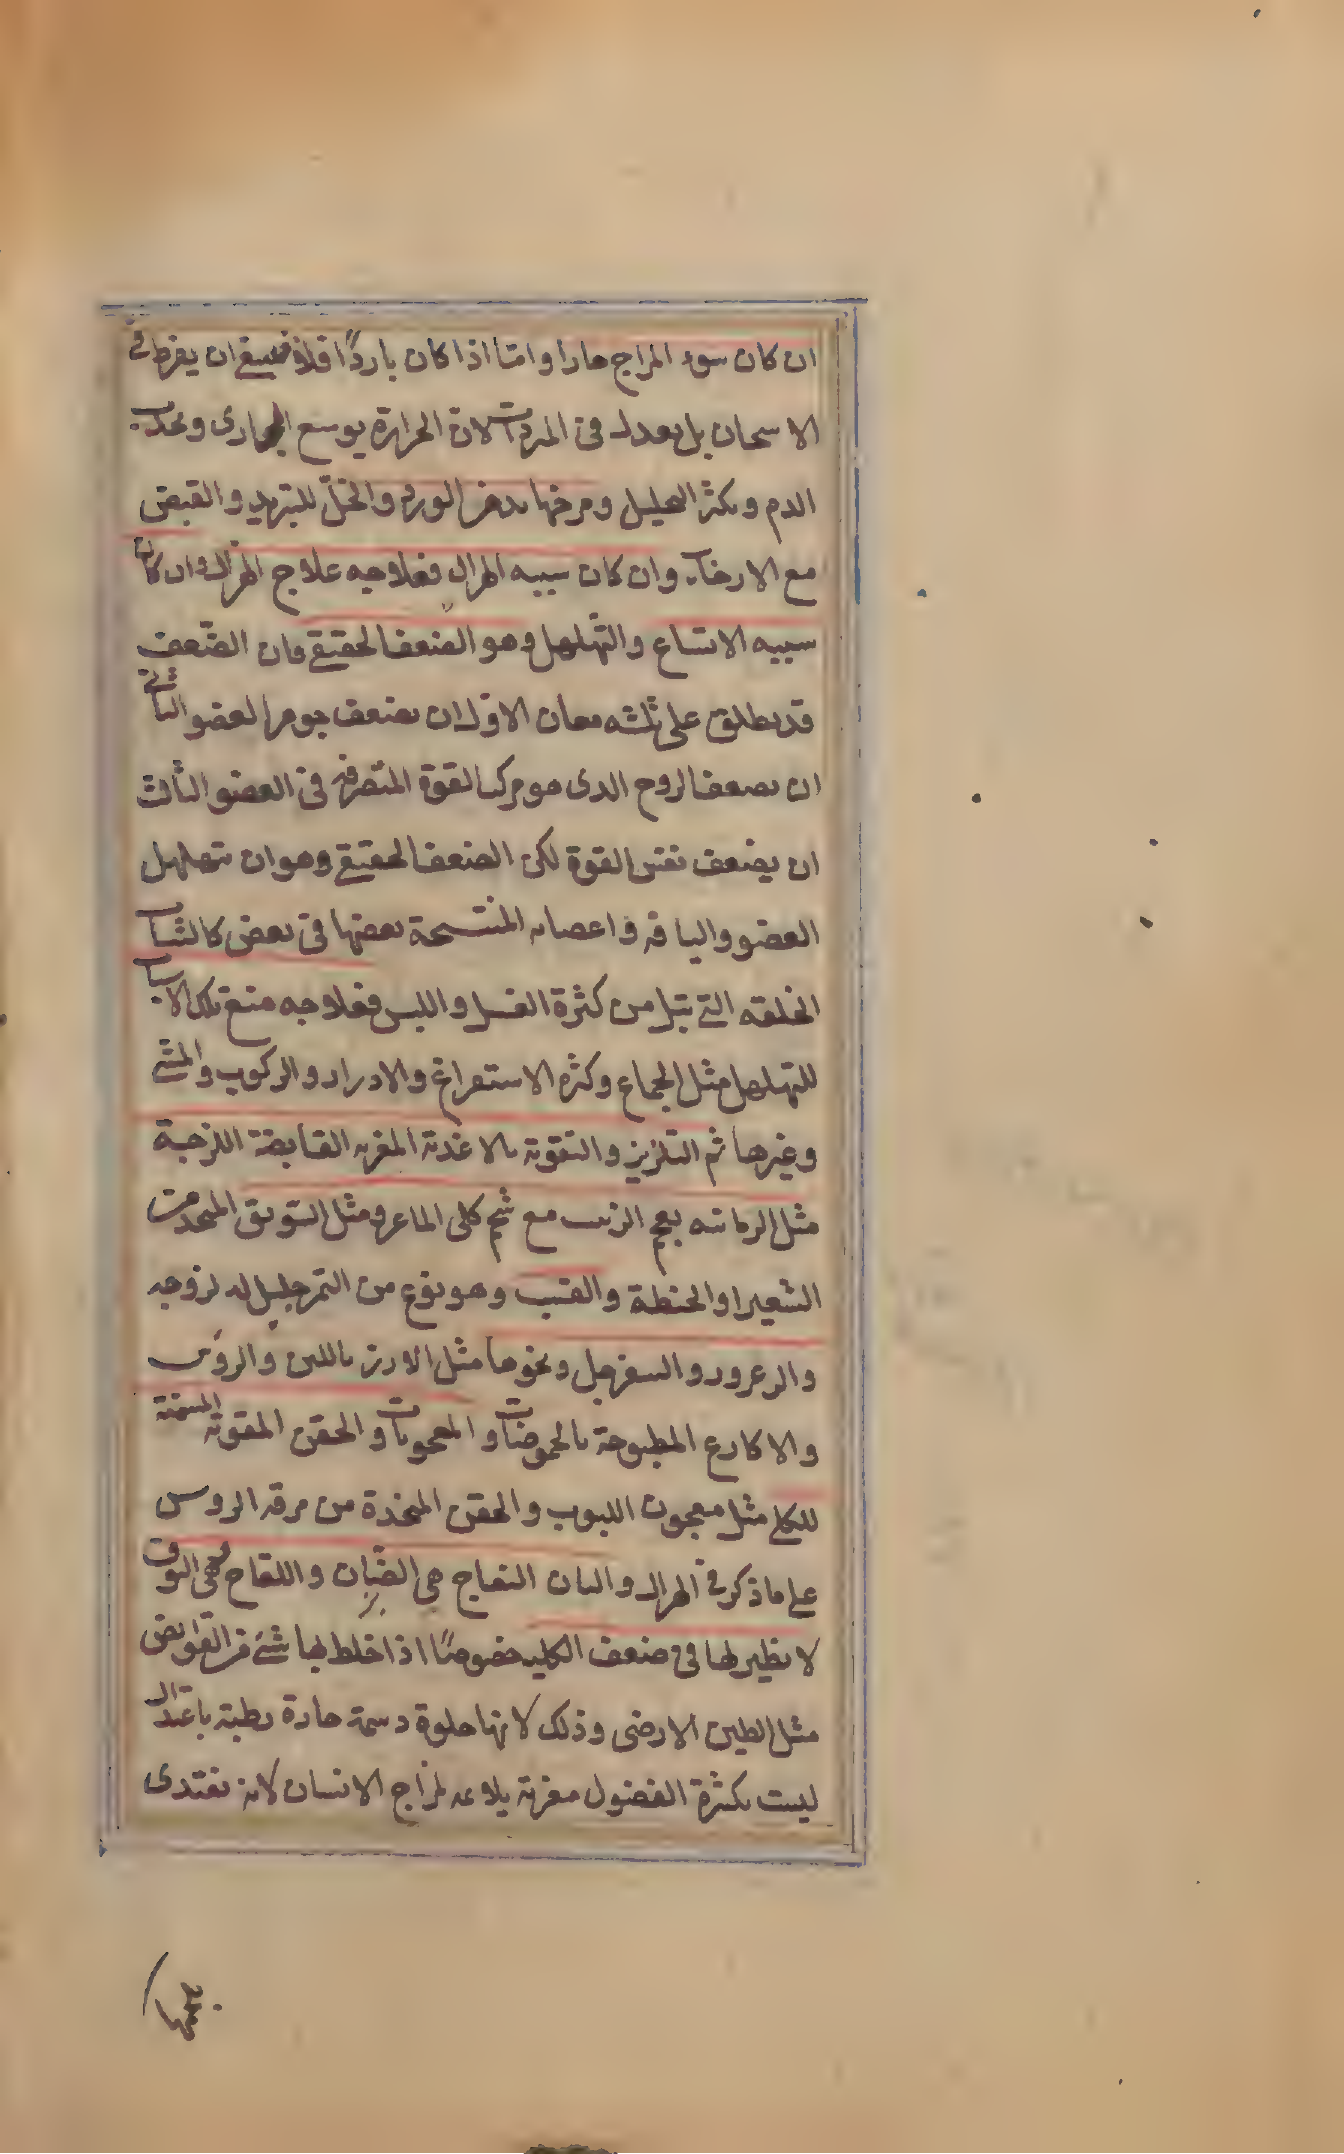 ان كان سوء المزاج حارا واما اذا كان باردًا فلا ينبغى ان يفرط فى
الاسخان بل يعدل فى المبردات لان الحرارة يوسع المجارى ويجذب
الدم ويكثر التحليل ومرخها بدهن الورد والخلّ للتبريد والقبض
مع الارخاء وان كان سببه الهزال فعلاجه علاج الهزال وان كان
سببه الاتساع والتّهلهل وهو الضعف الحقيقى فان الضّعف
قد يطلق على ثلثه معان الاوّل ان يضعف جوهر العضو الثانى
ان يضعف الروح الذى هو مركب القوة المتصرفه فى العضو الثالث
ان يضعف نفس القوة لكن الضعف الحقيقى وهو ان يتهلهل
العضو واليافه واعصابه المنتسجة بعضها فى بعض كالثياب
الخلقه التى تبلى من كثرة الغسل واللبس فعلاجه منع تلك الاسباب
للتهلهل مثل الجماع وكثره الاستفراغ والادرار والركوب والمشى
وغيرها ثم التلزيز والتقوية بالاغذية المغريه القابضة اللزجة
مثل الرمانيه بعجم الزبيب مع شحم كلى الماعز ومثل السّويق المتخذ من
الشعير او الحنطة والقسب وهو نوع من التمر جليل له لزوجه
والزعرور والسفرجل ونحوها مثل الارز باللبن والروس
والاكارع المطبوخة بالحموضات والمعجونات والحقن المقوية المسمنة
للكلى مثل معجون اللبوب والحقن المتخذة من مرقه الروس
على ما ذكر فى الهزال والبان النعاج هى الضّان واللقاح هى النوق
لا نظير لها فى ضعف الكليه خصوصًا اذا خلط بها شئ من القوابض
مثل الطين الارضى وذلك لانها حلوة دسمة حارة رطبة باعتدال
ليست بكثرة الفضول مغرية يلايمه لمزاج الانسان لانه يغتذى